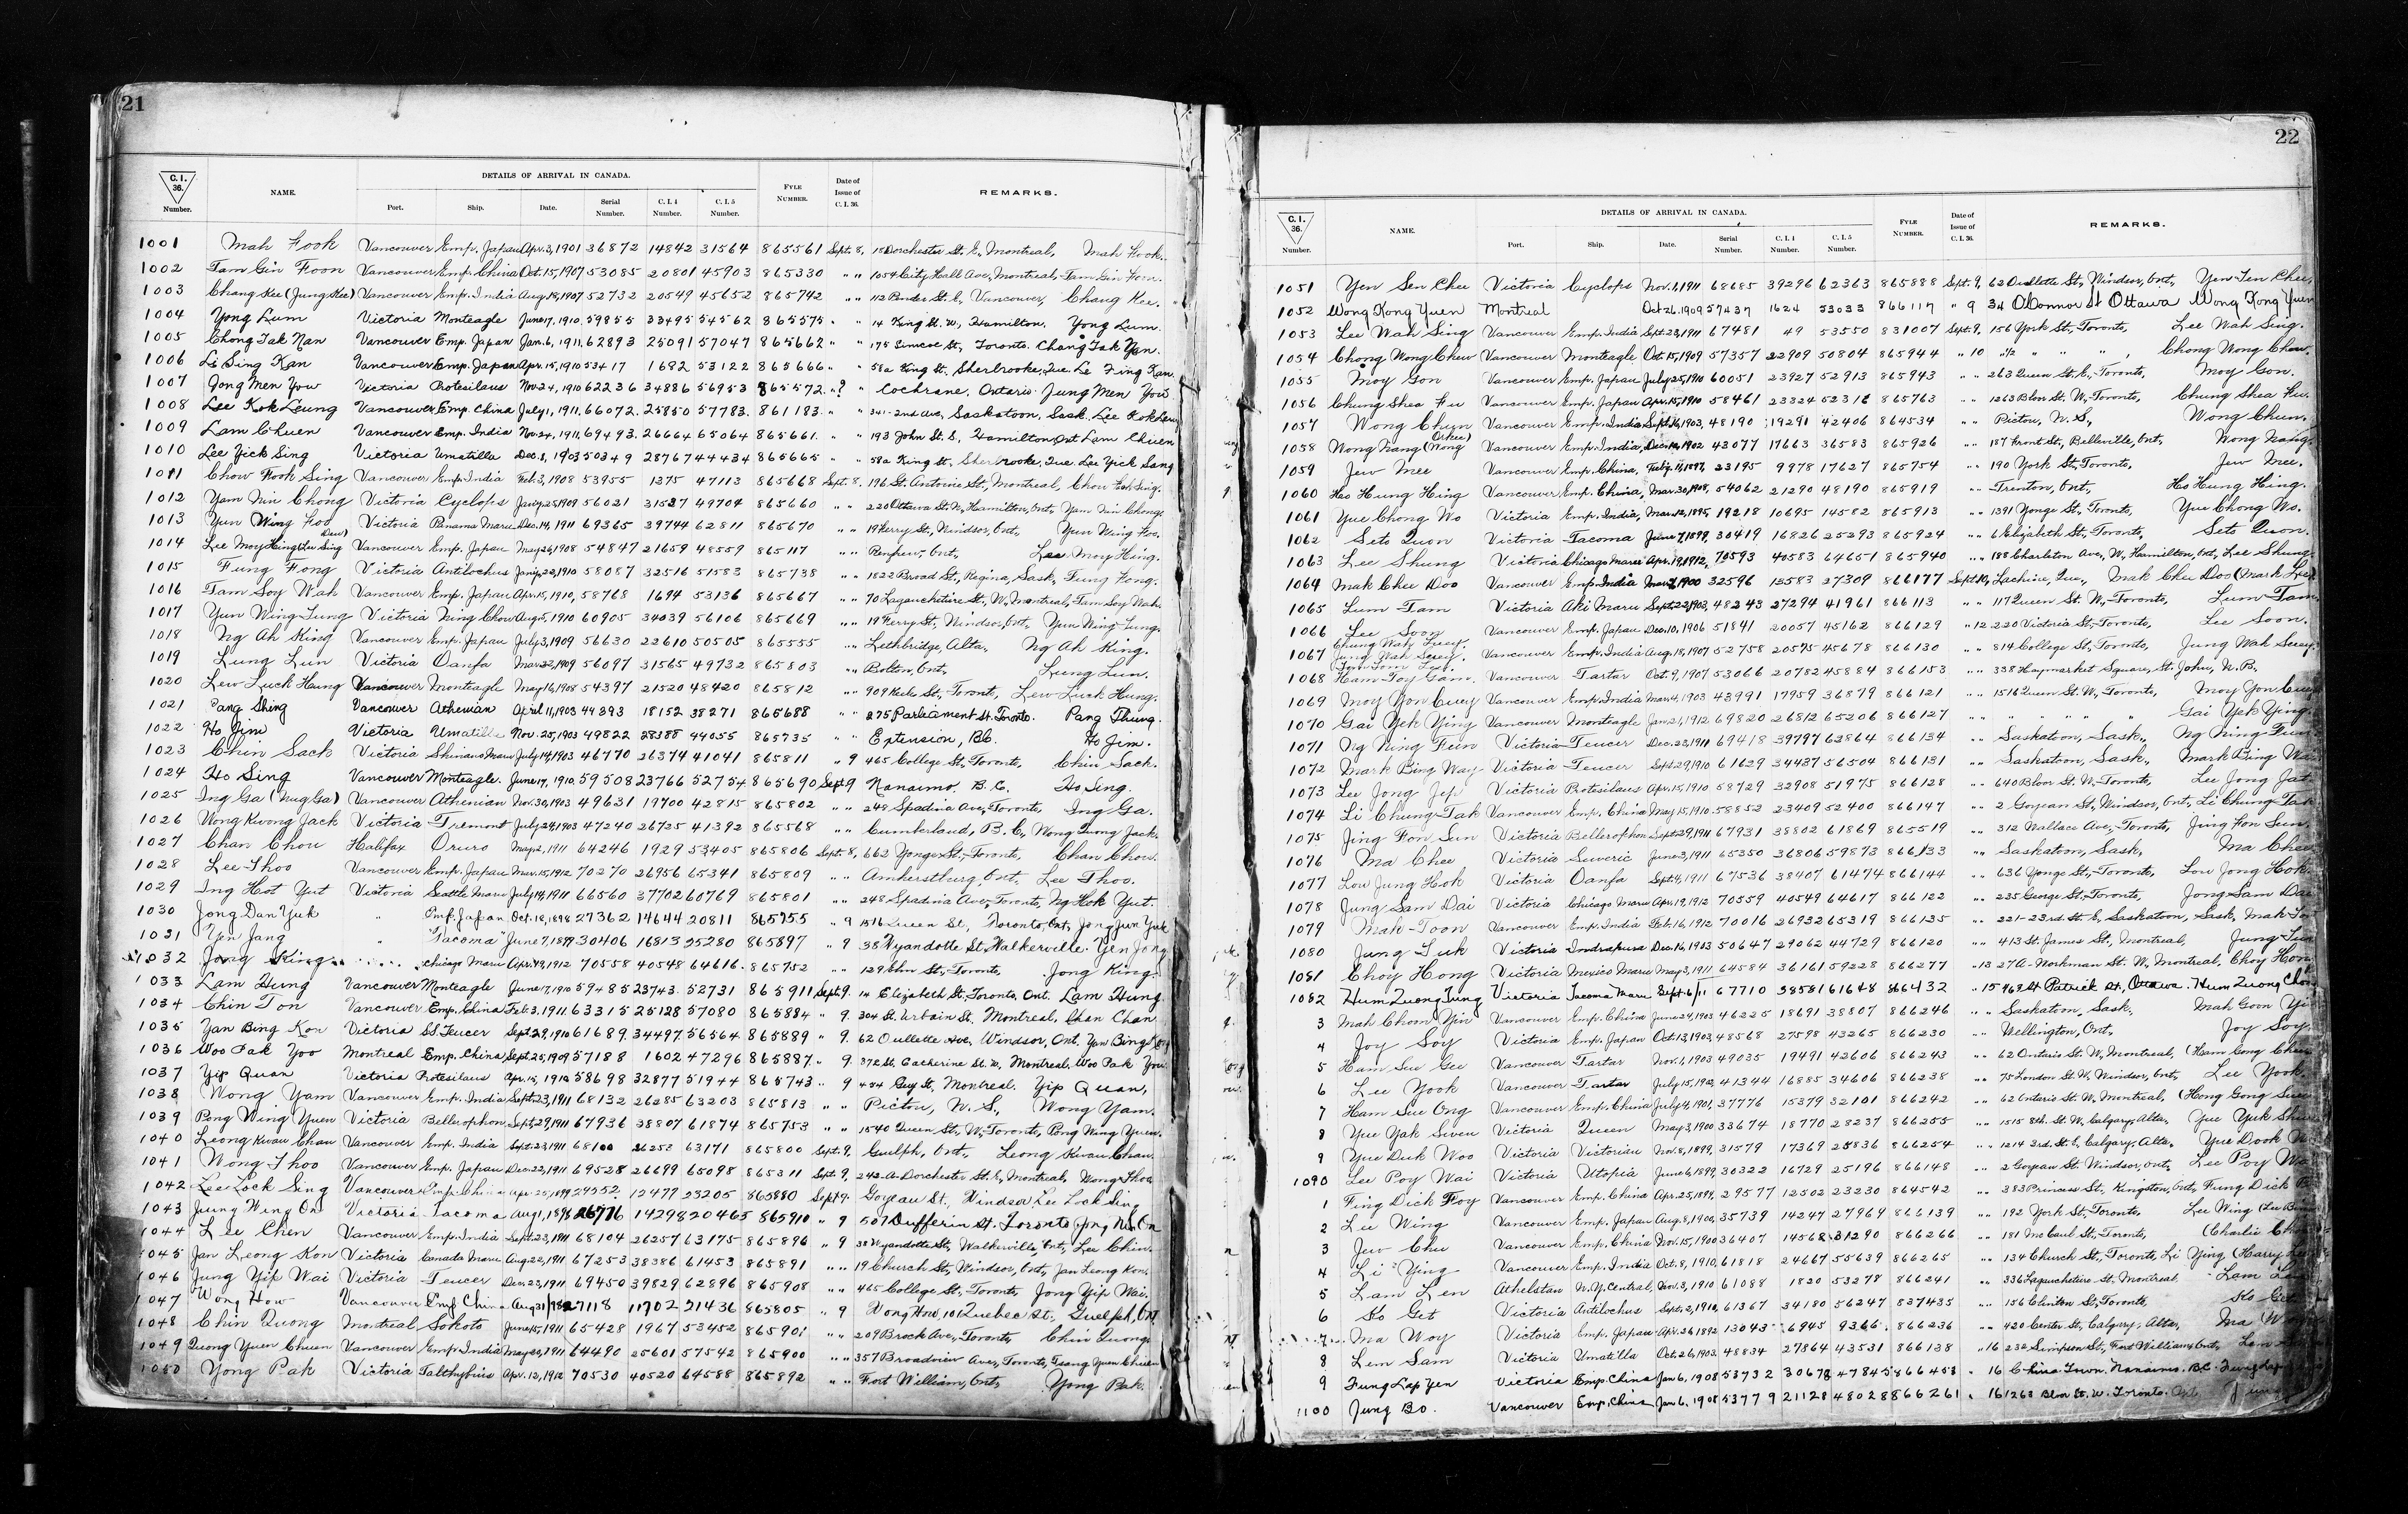 21
C. I. 36. Number. NAME. DETAILS OF ARRIVAL IN CANADA. Port. Ship. Date. Serial Number. C. I. 4 Number. C. I. 5 Number. FYLE NUMBER. Date of Issue of C. I. 36. REMARKS.
1001 Mah Fook Vancouver Emp. Japan Apr. 3, 1901 36872 14842 31564 865561 Sept. 8, Dorchester St. E, Montreal, Mah Fook.
1002 Tam Gin Foon Vancouver Emp. China Oct. 15, 1907 53085 20801 45903 865330 " " 1054 City Hall Ave, Montreal, Tam Gin Foon.
1003 Chang Kee (Jung Kee) Vancouver Emp. India Aug. 18, 1907 52732 20549 45652 865742 " " 112 Pender St. E, Vancouver, Chang Kee.
1004 Yong Lum Victoria Monteagle June 17, 1910 59855 33495 54562 865575 " " 14 King St. W, Hamilton. Yong Lum.
1005 Chong Tak Nan Vancouver Emp. Japan Jan. 6, 1911 62893 25091 57047 865662 " " 175 Simcoe St, Toronto. Chang Tak Yan.
1006 Li Sing Kan Vancouver Emp. Japan Apr. 15, 1910 53417 1692 53122 865666 " " 58a King St. Sherbrooke, Que. Li Sing Kan.
1007 Jong Men Yow Victoria Protesilaus Nov. 24, 1910 62236 34886 56953 865572 " ? Cochrane, Ontario. Jung Men You
1008 Lee Kok Leung Vancouver Emp. China July 1, 1911 66072 25850 57783 861183 " " 341-2nd Ave, Saskatoon, Sask. Lee Kok
1009 Lam Chuen Vancouver Emp. India Nov. 24, 1911 69493 26664 65064 865661 " " 193 John St. S, Hamilton, Ont. Lam Chuen
1010 Lee Yick Sing Victoria Umatilla Dec. 8, 1903 50349 28767 44434 865665 " " 58a King St, Sherbrooke, Que. Lee Yick Sang
1011 Chow Fook Sing Vancouver Emp. India Feb. 3, 1908 53955 1375 47113 865668 Sept. 8. 196 St. Antoine St, Montreal, Chow Fook Sing.
1012 Yam Nin Chong Victoria Cyclops Jany. 25, 1909 56021 31537 49704 865660 " " 220 Ottawa St. N, Hamilton, Ont, Yam Nin Chong
1013 Yun Wing Foo Victoria Panama Maru Dec. 14, 1911 69365 39744 62811 865670 " " 19 Ferry St, Windsor, Ont, Yun Wing Foo.
1014 Lee Moy Hing Vancouver Emp. Japan May 26, 1908 54847 21659 48559 865117 " " Renfrew, Ont, Lee Moy Hing.
1015 Fung Fong Victoria Antilochus Jany. 22, 1910 58087 32516 51583 865738 " " 1822 Broad St, Regina, Sask, Fung Fong.
1016 Tam Soy Wah Vancouver Emp. Japan Apr. 15, 1910, 58768 1694 53136 865667 " " 70 Lagauchetiere St, W, Montreal, Tam Soy Wah
1017 Yun Ning Tung Victoria Ning Chow Aug. 5, 1910 60905 34039 56106 865669 " " 19 Ferry St, Windsor, Ont, Yun Ning Tung.
1018 Ng Ah King Vancouver Emp. Japan July 3, 1909 56630 22610 50505 865555 " " Lethbridge, Alta, Ng Ah King.
1019 Lung Lun Victoria Oanfa Mar. 22, 1909 56097 31565 49732 865803 " " Bolton, Ont, Lung Lun.
1020 Lew Luck Hung Vancouver Monteagle May 16, 1908 54397 21520 48420 865812 " " 909 Keele St, Toronto, Lew Luck Hung.
1021 Pang Shing Vancouver Athenian April 11, 1903 44393 18152 38271 865688 " " 275 Parliament St. Toronto. Pang Thung.
1022 Ho Jim Victoria Umatilla Nov. 25, 1903 49822 28388 44055 865735 " " Extension, B.C. Ho Jim.
1023 Chin Sack Victoria Shinano Maru July 14, 1903 46770 26374 41041 865811 " 9 465 College St, Toronto, Chin Sack.
1024 Ho Sing Vancouver Monteagle. June 17, 1910. 59508 23766 52754 865690 Sept 9 Nanaimo. B.C. Ho Sing.
1025 Ing Ga (Nug Ga) Vancouver Athenian Nov. 30, 1903 49631 19700 42815 865802 " " 248 Spadina Ave, Toronto, Ing Ga.
1026 Wong Kwong Jack Victoria Tremont July 29, 1903 47240 26725 41392 865568 " " Cumberland, B.C, Wong Quong Jack.
1027 Chan Chou Halifax Oruro May 2, 1911 64246 1929 53405 865806 Sept. 8, 662 Yonge St, Toronto, Chan Chow.
1028 Lee Thoo Vancouver Emp. Japan Mar. 15, 1912 70270 26956 65341 865809 " " Amherstburg, Ont, Lee Thoo.
1029 Ing Hot Yut Victoria Seattle Maru July 14, 1911 66560 37702 60769 865801 " " 248 Spadina Ave, Toronto, Ng Hok Yut.
1030 Jong Dan Yuk " Emp. Japan Oct. 18, 1898 27362 14644 20811 865755 " 9 1516 Queen St, Toronto, Ont, Jong Jun Yuk
1031 Yen Jang " "Tacoma" June 7, 1899 30406 16813 25280 865897 " 9 38 Wyandotte St, Walkerville. Yen Jong
1032 Jong King Chicago Maru Apr. 19, 1912 70558 40548 64616 865752 " " 129 Elm St, Toronto, Jong King.
1033 Lam Hung Vancouver Monteagle June 7, 1910 59485 23743 52731 865911 Sept. 9. 14 Elizabeth St, Toronto, Ont. Lam Hung.
1034 Chin Ton Vancouver Emp. China Feb. 3, 1911 63315 25128 57080 865884 " 9. 304 St. Urbain St. Montreal, Chan Chan.
1035 Yan Bing Kon Victoria SS. Teucer Sept. 29, 1910 61689 34497 56564 865889 " 9. 62 Oullette Ave, Windsor, Ont. Yan Bing
1036 Woo Pak Yoo Montreal Emp. China Sept. 25, 1909 57188 1602 47296 865887 " 9. 372 St. Catherine St. W, Montreal. Woo Pak You
1037 Yip Quan Victoria Protesilaus Apr. 15, 1910 58698 32877 51944 865743 " 9 434 Guy St, Montreal. Yip Quan,
1038 Wong Yam Vancouver Emp. India Sept. 23, 1911 68132 26285 63203 865813 " " Pictou, N.S, Wong Yam.
1039 Pong Wing Yuen Victoria Bellerophon Sept. 29, 1911 67936 38807 61874 865753 " " 1540 Queen St, W, Toronto, Pong Wing Yuen.
1040 Leong Kwan Chau Vancouver Emp. India Sept. 23, 1911 68100 26253 63171 865800 Sept. 9, Guelph, Ont, Leong Kwan Chau.
1041 Wong Thoo Vancouver Emp. Japan Dec. 22, 1911 69528 26699 65098 865311 Sept. 9, 242 A Dorchester St. E, Montreal, Wong Thoo
1042 Lee Lock Sing Vancouver Emp. China Apr. 25, 1899 29552 12477 23205 865880 Sept 9. Goyeau St, Windsor Lee Lock Sing
1043 Jung Wing On Victoria Tacoma Aug 1, 1898 26776 14298 20465 865910 " 9 507 Dufferin St. Toronto Jung Wing On
1044 Lee Chen Vancouver Emp. India Sept. 23, 1911 68104 26257 63175 865896 " 9 38 Wyandotte St, Walkerville, Ont, Lee Chin.
1045 Jan Leong Kon Victoria Canada Maru Aug. 22, 1911 67253 38386 61453 865891 " " 19 Church St, Windsor, Ont, Jan Leong Kon.
1046 Jung Yip Wai Victoria Teucer Dec. 23, 1911 69450 39829 62896 865908 " " 465 College St, Toronto, Jong Yip Wai.
1047 Wong How Vancouver Emp China Aug 31/98 27118 11702 21436 865805 " 9 Wong How, 101 Quebec St., Guelph, Ont
1048 Chin Quong Montreal Sokoto June 15, 1911 65428 1967 53452 86590 " " 209 Brock Ave, Toronto Chin Quong.
1049 Quong Yuen Chuen Vancouver Emp. India May 22, 1911 64490 25601 57542 865900 " " 357 Broadview Ave, Toronto, Tsang Yuen Chuen
1050 Yong Pak Victoria Talthybius Apr. 12, 1912 70530 40520 64588 865892 " " Fort William, Ont, Yong Pak.
22
C. I. 36. Number. NAME. DETAILS OF ARRIVAL IN CANADA. Port. Ship. Date. Serial Number. C. I. 4 Number. C. I. 5 Number. FYLE NUMBER. Date of Issue of C. I. 36. REMARKS.
1051 Yen Sen Chee Victoria Cyclops Nov. 1, 1911 68685 39296 62363 865888 Sept. 9, 62 Oullette St, Windsor, Ont, Yen Sen Chee,
1052 Wong Kong Yuen Montreal Oct 26. 1909 57437 1624 53033 866117 " 9 34 O'Connor St Ottawa Wong Kong Yuen
1053 Lee Wah Sing Vancouver Emp. India Sept. 23, 1911 67481 49 53550 831007 Sept. 9, 156 York St, Toronto, Lee Wah Sing.
1054 Chong Wong Chew Vancouver Monteagle Oct. 15, 1909 57357 22909 50804 865944 " 10 " " " , Chong Wong Chew.
1055 Moy Gon Vancouver Emp. Japan July 25, 1910 60051 23927 52913 865943 " " 263 Queen St. E, Toronto, Moy Gon.
1056 Chung Shea Fu Vancouver Emp. Japan Apr. 15, 1910 58461 23324 52316 865763 " " 1263 Bloor St. W, Toronto, Chung Shea Fu.
1057 Wong Chun Vancouver Emp. India Sept. 16, 1903, 48190 19291 42406 864534 " " Pictou, N.S, Wong Chun.
1058 Wong Nang (Wong Oshu) Vancouver Emp. India, Dec. 10, 1902 43077 17663 36583 865926 " " 187 Front St, Belleville, Ont, Wong Nang.
1059 Jew Mee Vancouver Emp. China, Feby. 11, 1897, 23195 9978 17627 865754 " " 190 York St, Toronto, Jew Mee.
1060 Ho Hung Hing Vancouver Emp. China, Mar. 30, 1908, 54062 21290 48190 865919 " " Trenton, Ont, Ho Hung Hing.
1061 Yue Chong Wo Victoria Emp. India, Mar. 12, 1895 19218 10695 14582 865913 " " 1391 Yonge St, Toronto, Yue Chong Wo.
1062 Seto Quon Victoria Tacoma June 7, 1899, 30419 16826 25293 865924 " " 6 Elizabeth St, Toronto, Seto Quon.
1063 Lee Shung Victoria Chicago Maru Apr. 19, 1912, 70593 40583 64651 865940 " " 188 Charlton Ave, W, Hamilton, Ont, Lee Shung.
1064 Mak Chu Doo Vancouver Emp. India Mar. 7, 1900 32596 13583 27309 866177 Sept. 10, Lachine, Que, Mak Chu Doo (Mark
1065 Lum Tam Victoria Aki Maru Sept. 22, 1903, 48243 27294 41961 866113 " " 117 Queen St. W, Toronto, Lum Tam.
1066 Lee Soon Vancouver Emp. Japan Dec. 10, 1906 51841 20057 45162 866129 " 12 220 Victoria St, Toronto, Lee Soon.
1067 Chung Wah Suey. Jung Wah Suey. Vancouver Emp. India Aug. 18, 1907 52758 20575 45678 866130 " " 814 College St, Toronto, Jung Wah Suey.
1068 Ham Toy Gam. Vancouver Tartar Oct. 9, 1907 53066 20782 45884 866153 " " 338 Haymarket Square, St. John, N.B.
1069 Moy Yon Cuey Vancouver Emp. India Mar. 4, 1903 43991 17959 36879 866121 " " 1516 Queen St. W, Toronto, Moy Yon Cuey
1070 Gai Yek Ying Vancouver Monteagle Jan. 21, 1912 69820 26812 65206 866127 " " " " " " Gai Yek Ying.
1071 Ng Ning Fun Victoria Teucer Dec. 23, 1911 69418 39797 62864 866134 " " Saskatoon, Sask, Ng Ning Fun
1072 Mark Bing Way Victoria Teucer Sept. 29, 1910 61629 34437 56504 866131 " " Saskatoon, Sask, Mark Bing
1073 Lee Jong Jep Victoria Protesilaus Apr. 15, 1910 58729 32908 51975 866128 " " 640 Bloor St. W, Toronto, Lee Jong Jat
1074 Li Chung Tak Vancouver Emp. China May 15, 1910 58852 23409 52400 866147 " " 2 Goyeau St, Windsor, Ont, Li Chung Tak
1075 Jing Fon Sun Victoria Bellerophon Sept. 29, 1911 67931 38802 61869 865519 " " 312 Wallace Ave, Toronto, Jing Fon Sun,
1076 Ma Chee Victoria Suveric June 3, 1911 65350 36806 59873 866133 " " Saskatoon, Sask, Ma Chee
1077 Low Jung Hok Victoria Oanfa Sept. 4, 1911 67536 38407 61474 866144 " " 636 Yonge St, Toronto, Low Jong Hok
1078 Jung Sam Dai Victoria Chicago Maru Apr. 19, 1912 70559 40549 64617 866122 " " 235 George St, Toronto, Jong Sam Dai
1079 Mah Toon Vancouver Emp. India Feb. 16, 1912 70016 26932 65319 866135 " " 221-23rd St. E, Saskatoon, Sask, Mah
1080 Jung Luk Victoria Indrapura Dec. 16, 1903 50647 29062 44729 866120 " " 413 St. James St, Montreal, Jung
1081 Choy Hong Victoria Mexico Maru May 3, 1911 64584 36161 59228 866277 " 13 27A - Workman St. W, Montreal, Choy Hong
1082 Hum Quong Tung Victoria Tacoma Maru Sept. 6/11 67710 38581 61648 866432 " 15 468 St Patrick St, Ottawa. Hum Quong
3 Mah Choon Yin Vancouver Emp. China June 24, 1903 46225 18691 38807 866246 " " Saskatoon, Sask, Mah Goon
4 Joy Soy Victoria Emp. Japan Oct. 13, 1903 48568 27598 43265 866230 " " Wellington, Ont, Joy Soy
5 Ham Su Gee Vancouver Tartar Nov. 1, 1903 49035 19491 42606 866243 " " 62 Ontario St. W, Montreal, (Ham Gong
6 Lee Yook Vancouver Tartar July 15, 1902 41344 16885 34606 866238 " " 75 London St. W, Windsor, Ont, Lee Yook
7 Ham Sue Ong Vancouver Emp. China July 4, 1901, 37776 15379 32101 866242 " " 62 Ontario St. W, Montreal, (Hong Gong
8 Yue Yak Swen Victoria Queen May 3, 1900 33674 18770 28237 866255 " " 1515 8th. St. W, Calgary, Alta, Yue Yuk
9 Yue Duk Woo Victoria Victorian Nov. 8, 1899, 31579 17369 25836 866254 " " 1214 3rd. St. E, Calgary, Alta, Yue Dook
1090 Lee Poy Wai Victoria Utopia June 6, 1899, 30322 16729 25196 866148 " " 2 Goyeau St. Windsor, Ont, Lee Poy
1 Fing Dick Foy Vancouver Emp. China Apr. 25, 1899, 29577 12502 23230 864542 " " 383 Princess St, Kingston, Ont, Fung Dick
2 Lee Wing Vancouver Emp. Japan Aug. 8, 1900, 35739 14247 27969 866139 " " 192 York St, Toronto, Lee Wing
3 Jew Chu Vancouver Emp. China Nov. 15, 1900 36407 14568 31290 866266 " " 181 McCaul St, Toronto, (Charlie
4 Li Ying Vancouver Emp. India Oct. 8, 1910, 61818 24667 55639 866265 " " 134 Church St, Toronto, Li Ying (Harry
5 Lam Len Athelstan N.Y. Central Nov. 3, 1910 61088 1820 53278 866241 " " 336 Lagauchetiere St. Montreal. Lam
6 Ko Get Victoria Antilochus Sept. 2, 1910, 61367 34180 56247 837435 " " 156 Clinton St, Toronto, Ko Get
7 Ma Woy Victoria Emp. Japan Apr. 26, 1892 13043 6945 9366 866236 " " 420 Center St, Calgary, Alta, Ma
8 Lem Sam Victoria Umatilla Oct. 26, 1903 48834 27864 43531 866138 " 16 232 Simpson St, Fort William, Ont, Lem
9 Fung Lap Yen Victoria Emp. China Jan 6, 1908 53732 30678 47845 866458 " 16 China Town. Nanaimo. B.C. Fung Lap
1100 Jung Bo. Vancouver Emp. China Jan 6, 1908 53779 21128 48028 866261 " 16 1263 Bloor St. W. Toronto. Ont.